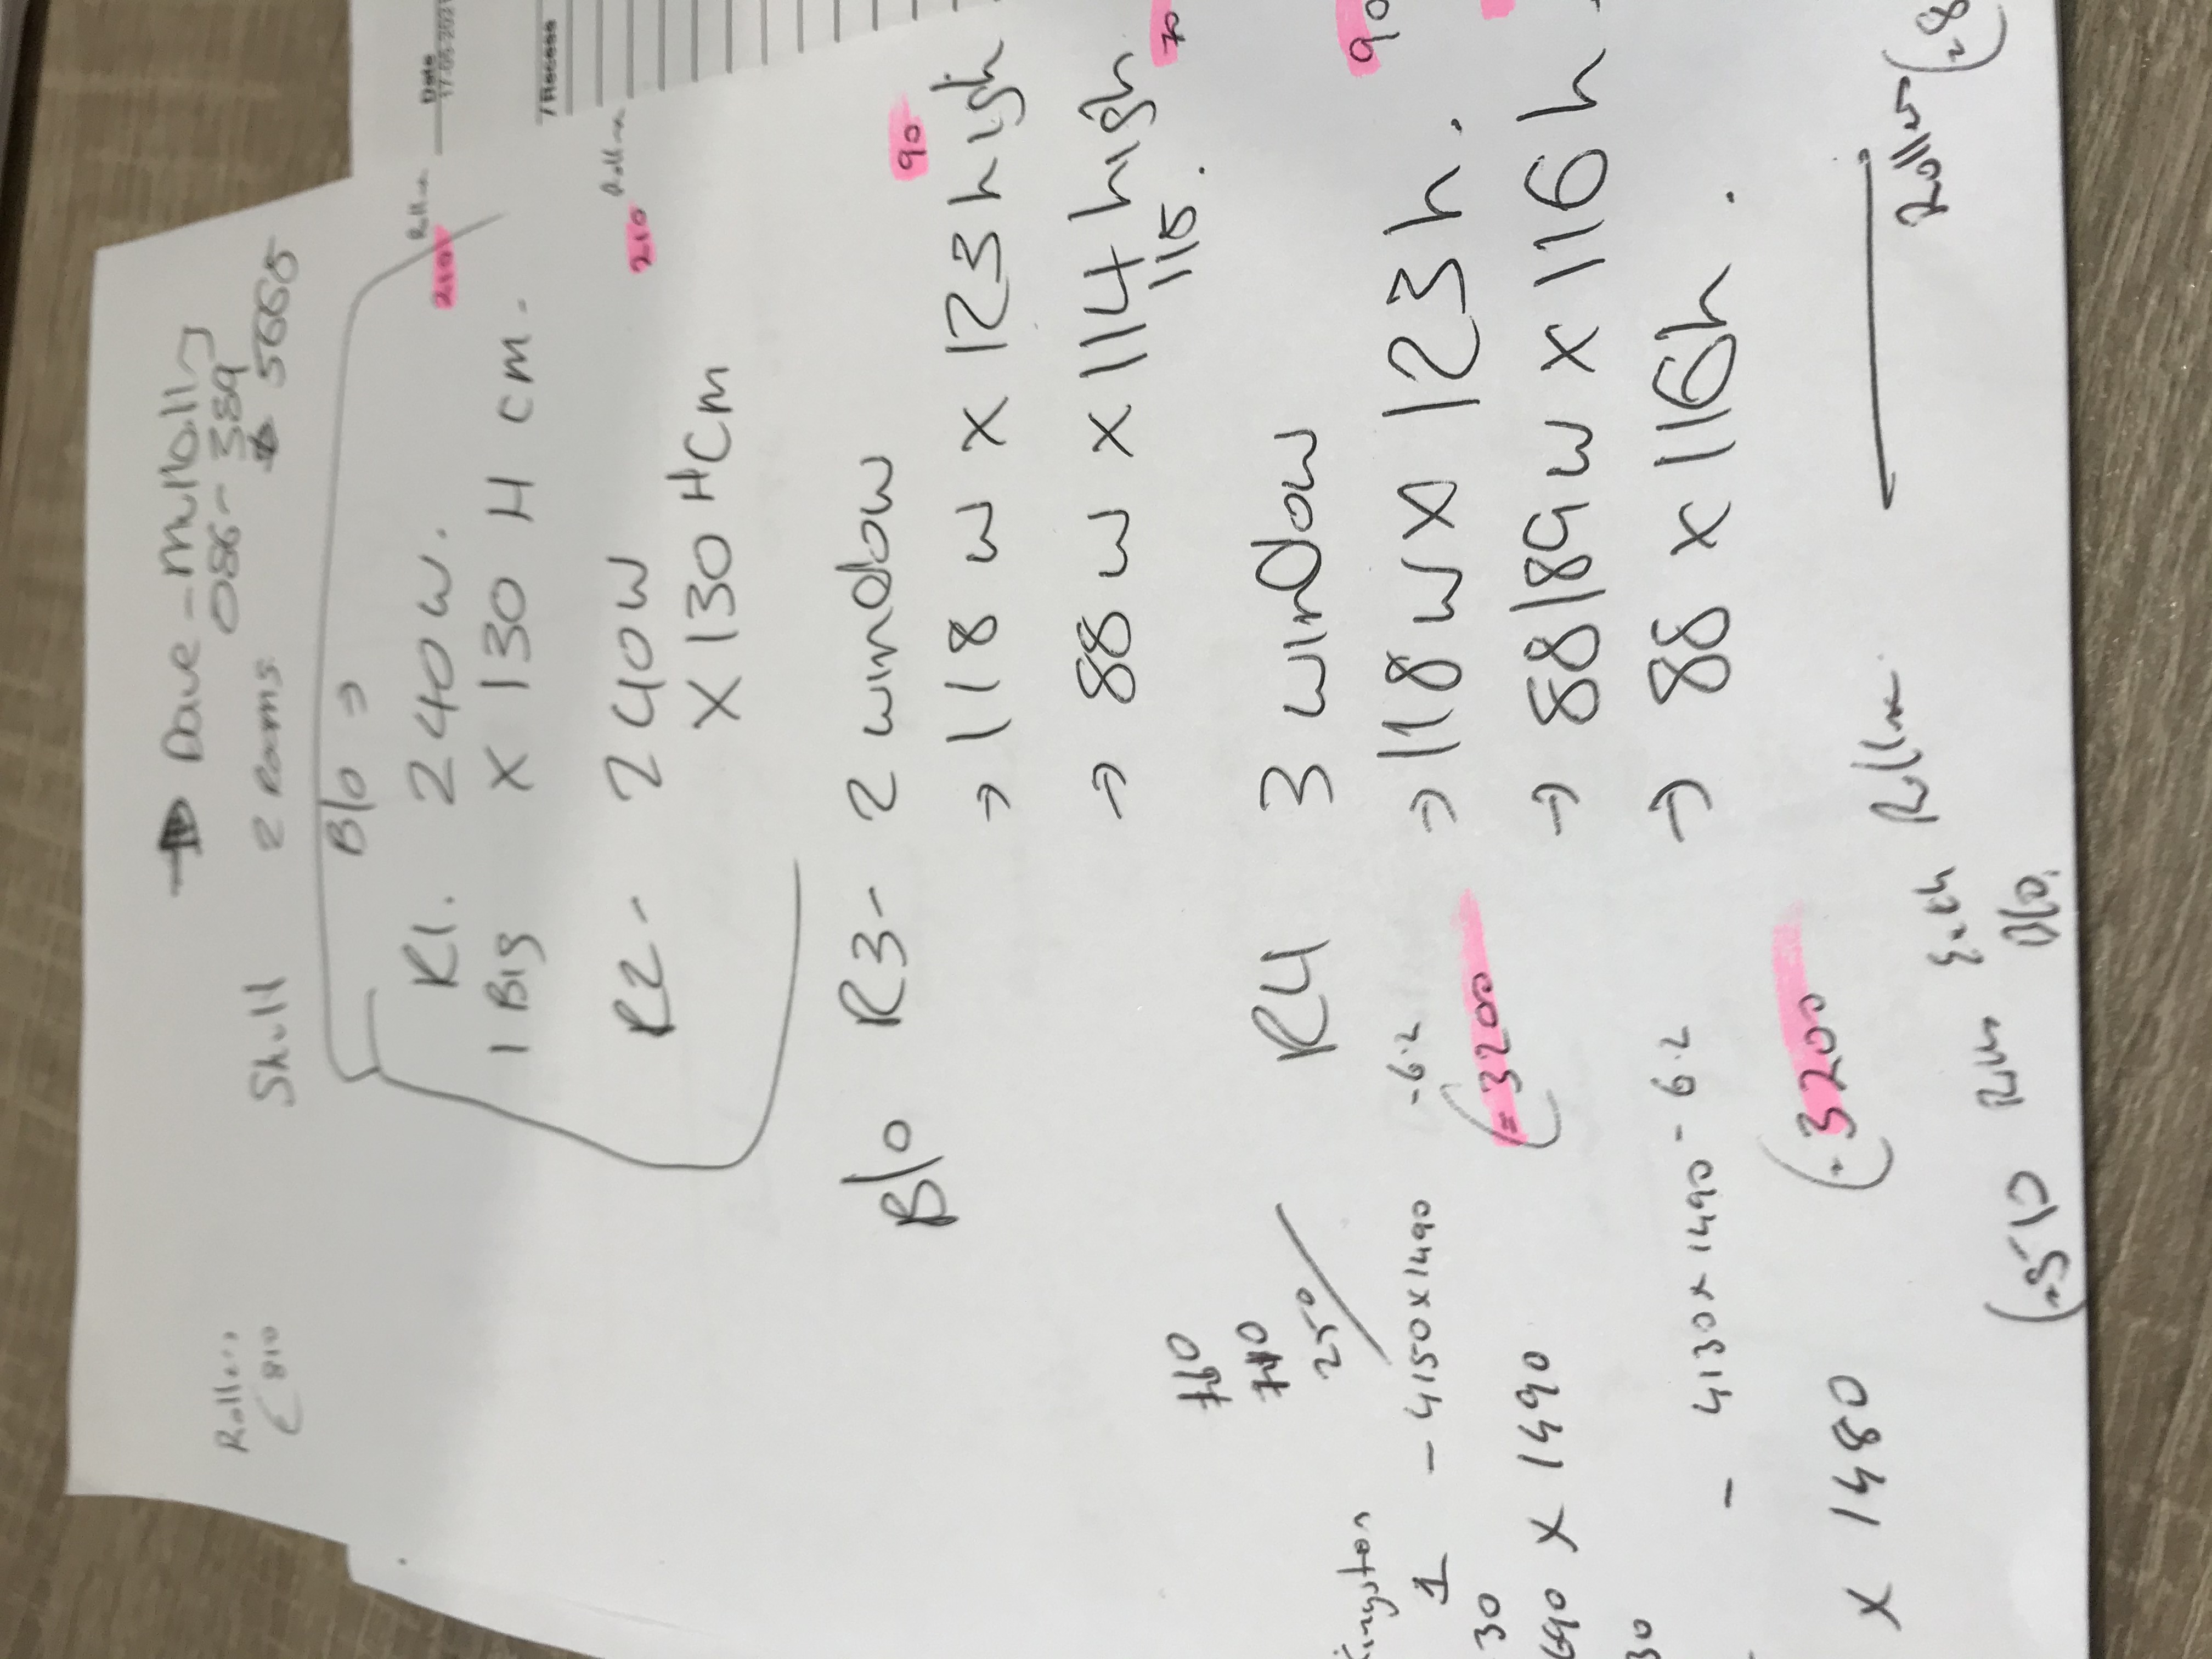 → Dave - Mullally
086 - 389
5665
Shull 2 Rooms
Rollers
(810
B/o ⇒
R1. 240 w. 210 Roller
1 Big X 130 H cm.
R2 - 240 w 210 Roller
X 130 H cm
Date
17-06-202
/ Recess
B/o R3 - 2 window
→ 118 w x 123 high 90
→ 88 w x 114 high 70
115.
R4 3 window
→ 118 w x 123 h. 90
→ 88/89 w x 116 h
→ 88 x 116 h.
760
740
250
1 - 4150 x 1490 - 6.2
30
690 x 1490
(= 3200
30
- 4130 x 1490 - 6.2
x 1480
(= 3200
Roller
Rollers
(=8
(=510